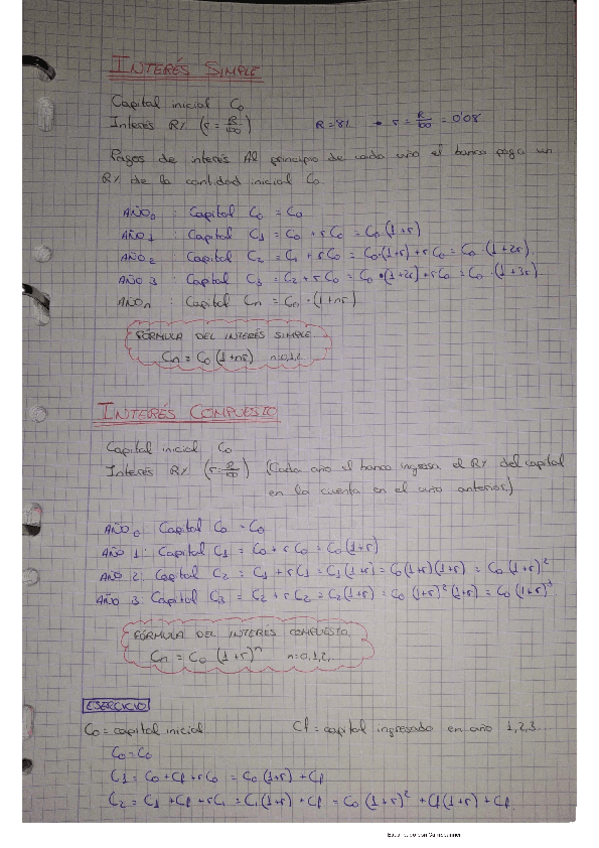 INTERÉS SIMPLE
Capital inicial C₀
Interés R% (r = R/100)    R = 8%  → r = R/100 = 0'08
Pagos de interés Al principio de cada año el banco paga un
R% de la cantidad inicial C₀.
AÑO₀ : Capital C₀ = C₀
AÑO 1 : Capital C₁ = C₀ + rC₀ = C₀(1+r)
AÑO 2 : Capital C₂ = C₁ + rC₀ = C₀·(1+r) + rC₀ = C₀·(1+2r).
AÑO 3 : Capital C₃ = C₂ + rC₀ = C₀·(1+2r) + rC₀ = C₀·(1+3r)
AÑOn : Capital Cn = C₀·(1+nr)
FÓRMULA DEL INTERÉS SIMPLE
Cn = C₀(1+nr)  n=0,1,2..
INTERÉS COMPUESTO
Capital inicial C₀
Interés R% (r = R/100) (Cada año el banco ingresa el R% del capital
en la cuenta en el año anterior.)
AÑO₀ Capital C₀ = C₀
AÑO 1: Capital C₁ = C₀ + rC₀ = C₀(1+r)
AÑO 2: Capital C₂ = C₁ + rC₁ = C₁(1+r) = C₀(1+r)(1+r) = C₀(1+r)²
AÑO 3: Capital C₃ = C₂ + rC₂ = C₂(1+r) = C₀(1+r)²(1+r) = C₀(1+r)³
FÓRMULA DEL INTERÉS COMPUESTO
Cn = C₀(1+r)ⁿ  n=0,1,2,...
EJERCICIO
C₀ = capital inicial    Cf = capital ingresado en año 1,2,3...
C₀ = C₀
C₁ = C₀ + Cf + rC₀ = C₀(1+r) + Cf
C₂ = C₁ + Cf + rC₁ = C₁(1+r) + Cf = C₀(1+r)² + Cf(1+r) + Cf.